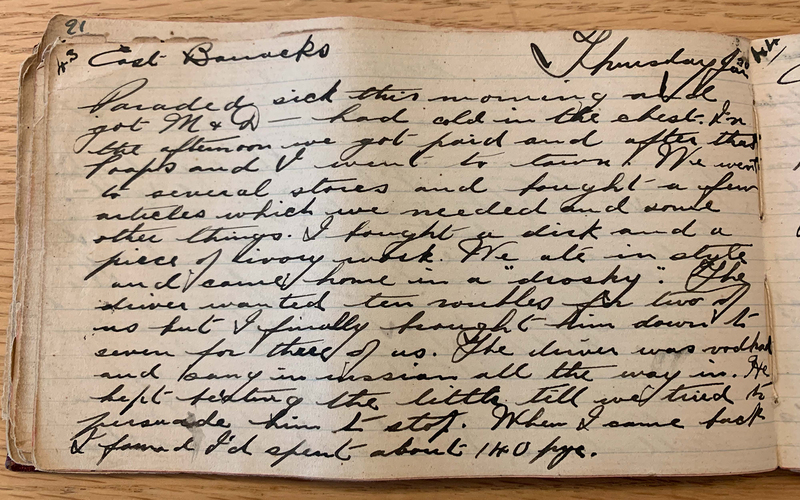 91
43 East Barracks Thursday Jan 30
Paraded sick this morning and
got M & D — had cold in the chest. In
the afternoon we got paid and after that
Poaps and I went to town. We went
to several stores and bought a few
articles which we needed and some
other things. I bought a disk and a
piece of ivory work. We ate in style
and came home in a "drosky". The
driver wanted ten roubles for two of
us but I finally brought him down to
seven for three of us. The driver was
and sang in russian all the way in. He
kept beating the little till we tried to
persuade him to stop. When I came back
I found I'd spent about 140 pye.